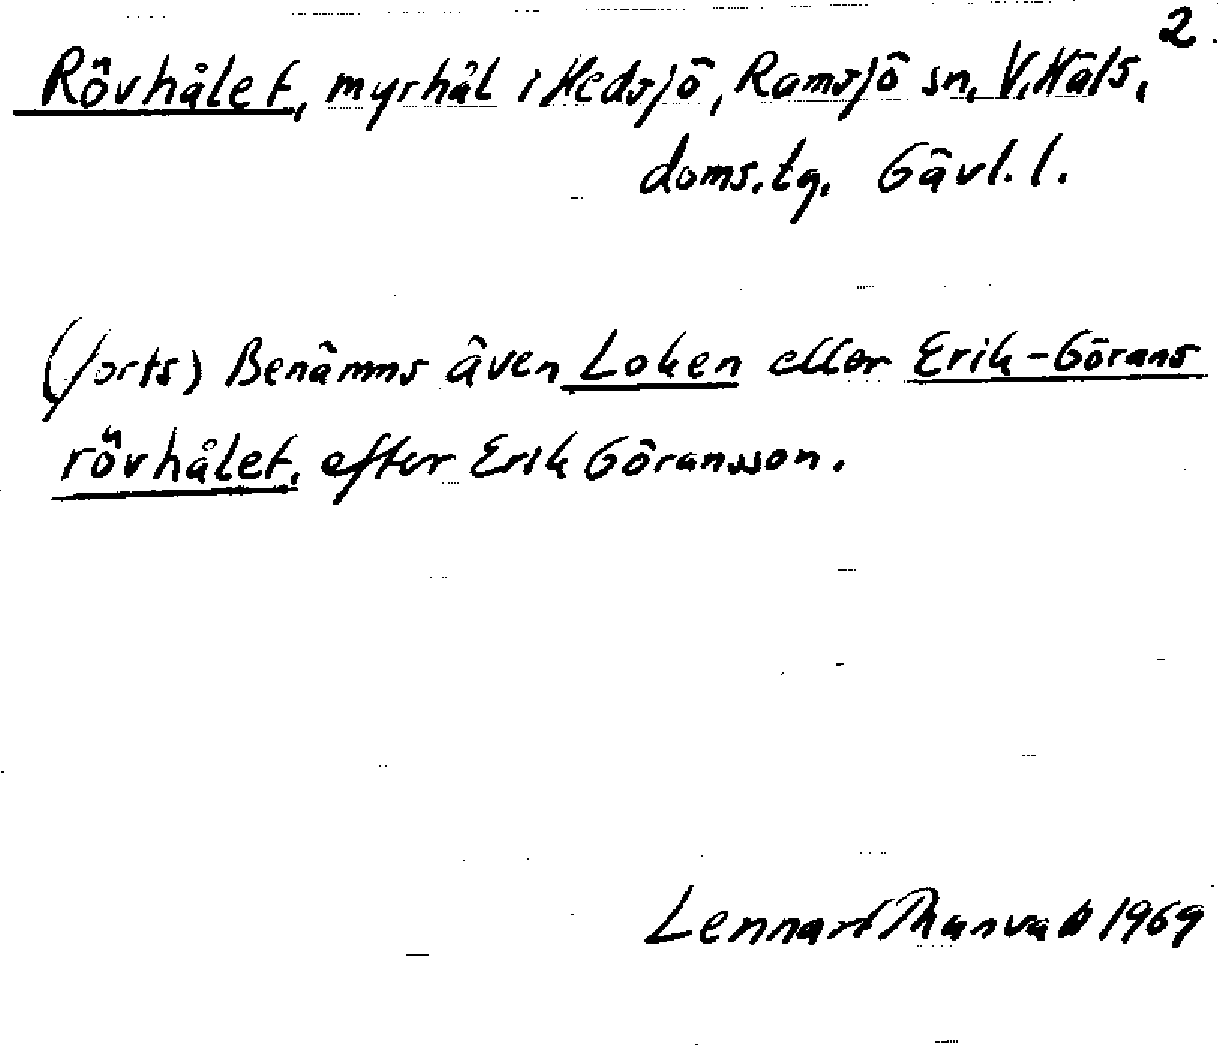 2.
Rövhålet, myrhål i Hedsjö, Ramsjö sn, V. Häls.
doms. tg. Gävl. l.
(forts) Benämns även Loken eller Erik-Görans
rövhålet, efter Erik Göransson.
Lennart 1969